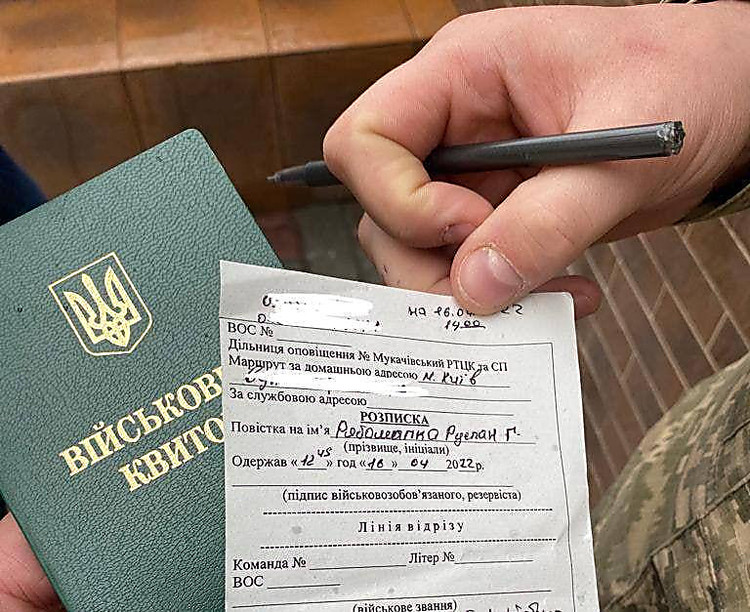 ВІЙСЬКОВ
КВИТО
на 16.04
1400
ВОС №
Дільниця оповіщення № Мукачівський РТЦК та СП
Маршрут за домашньою адресою м. Київ
За службовою адресою
РОЗПИСКА
Повістка на ім'я Рябошапка Руслан Г.
(прізвище, ініціали)
Одержав «12 45» год «16» 04 2022р.
(підпис військовозобов'язаного, резервіста)
Лінія відрізу
Команда № Літер №
ВОС
(військове звання)